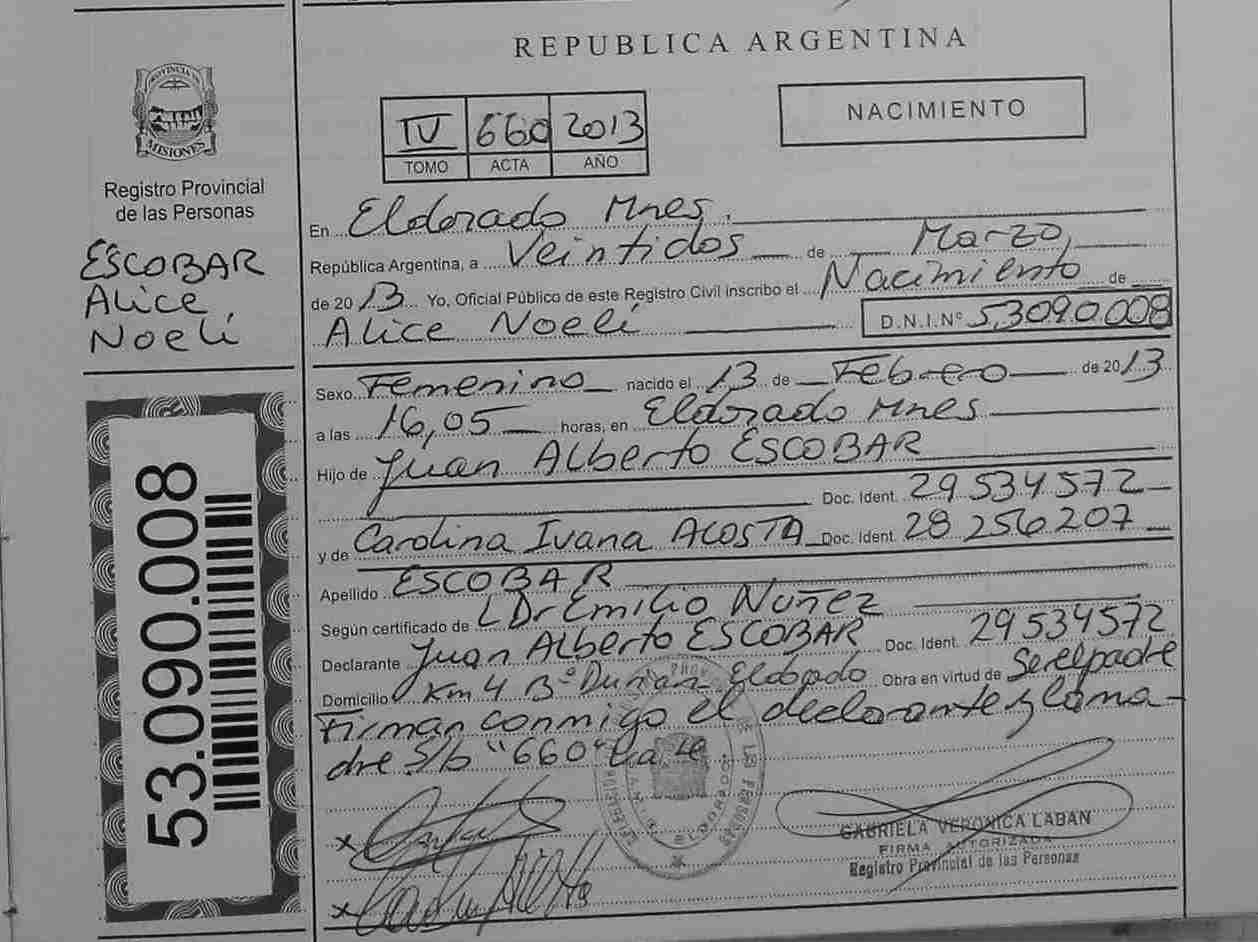 REPUBLICA ARGENTINA
PROVINCIA DE
MISIONES
Registro Provincial
de las Personas
ESCOBAR
Alice
Noelí
53.090.008
IV 660 2013
TOMO ACTA AÑO
NACIMIENTO
En Eldorado Mnes.
República Argentina, a Veintidos de Marzo,
de 2013 Yo, Oficial Público de este Registro Civil inscribo el Nacimiento de
Alice Noelí D.N.I.Nº 53.090.008
Sexo Femenino nacido el 13 de Febrero de 2013
a las 16,05 horas, en Eldorado Mnes
Hijo de Juan Alberto ESCOBAR
Doc. Ident. 29 534 572
y de Carolina Ivana ACOSTA Doc. Ident. 28 256 207
Apellido ESCOBAR
Según certificado de Dr Emilio Nuñez
Declarante Juan Alberto ESCOBAR Doc. Ident. 29534572
Domicilio Km 4 Bº Eldorado Obra en virtud de Ser el padre
Firman conmigo el declarante y la ma-
dre S/b "660"
GABRIELA VERONICA LABAN
FIRMA AUTORIZADA
Registro Provincial de las Personas